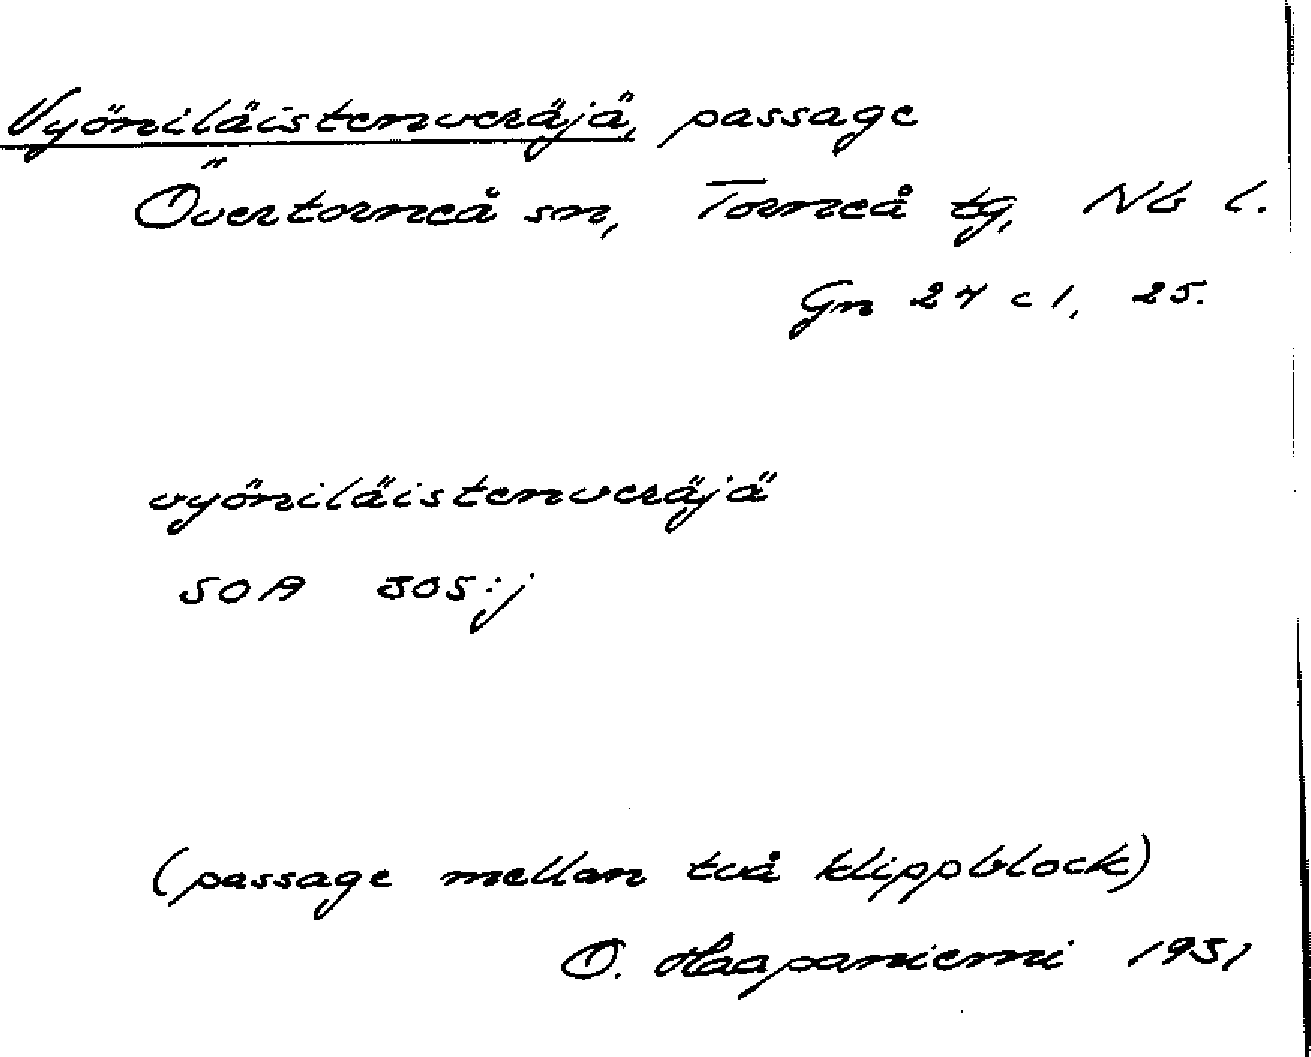 Vyöniläistenveräjä, passage
Övertorneå sn, Torneå tg, Nb l.
Gn 24 c 1, 25.
vyöniläistenveräjä
SOA 305:j
(passage mellan två klippblock)
O. Haapaniemi 1931